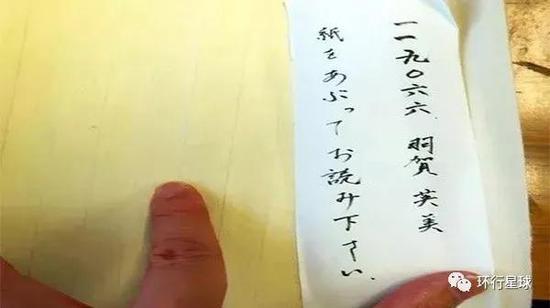 一一九〇六六、羽賀英美
紙をあぶってお読み下さい、
环行星球